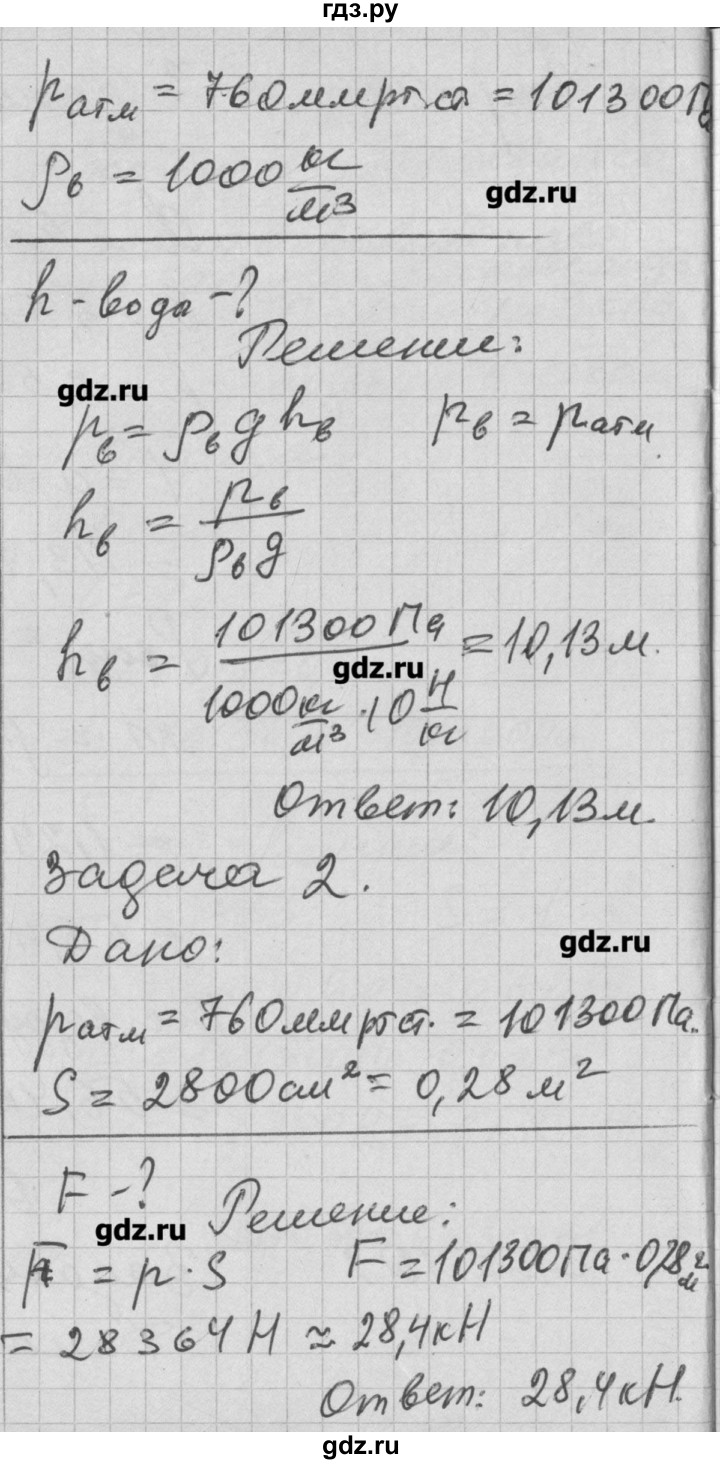 гдз.ру
pатм = 760 мм рт ст = 101300 Па
ρв = 1000 кг/м³
gdz.ru
h - вода - ?
Решение:
gdz.ru
pв = ρв g hв    pв = pатм.
hв = pв / ρв g
hв = 101300 Па / 1000 кг/м³ · 10 Н/кг = 10,13 м.
gdz.ru
Ответ: 10,13 м.
Задача 2.
Дано:
gdz.ru
pатм = 760 мм рт ст. = 101300 Па.
S = 2800 см² = 0,28 м²
F - ?
Решение:
gdz.ru
F = p · S    F = 101300 Па · 0,28 м² =
= 28364 Н ≈ 28,4 кН
Ответ: 28,4 кН.
gdz.ru